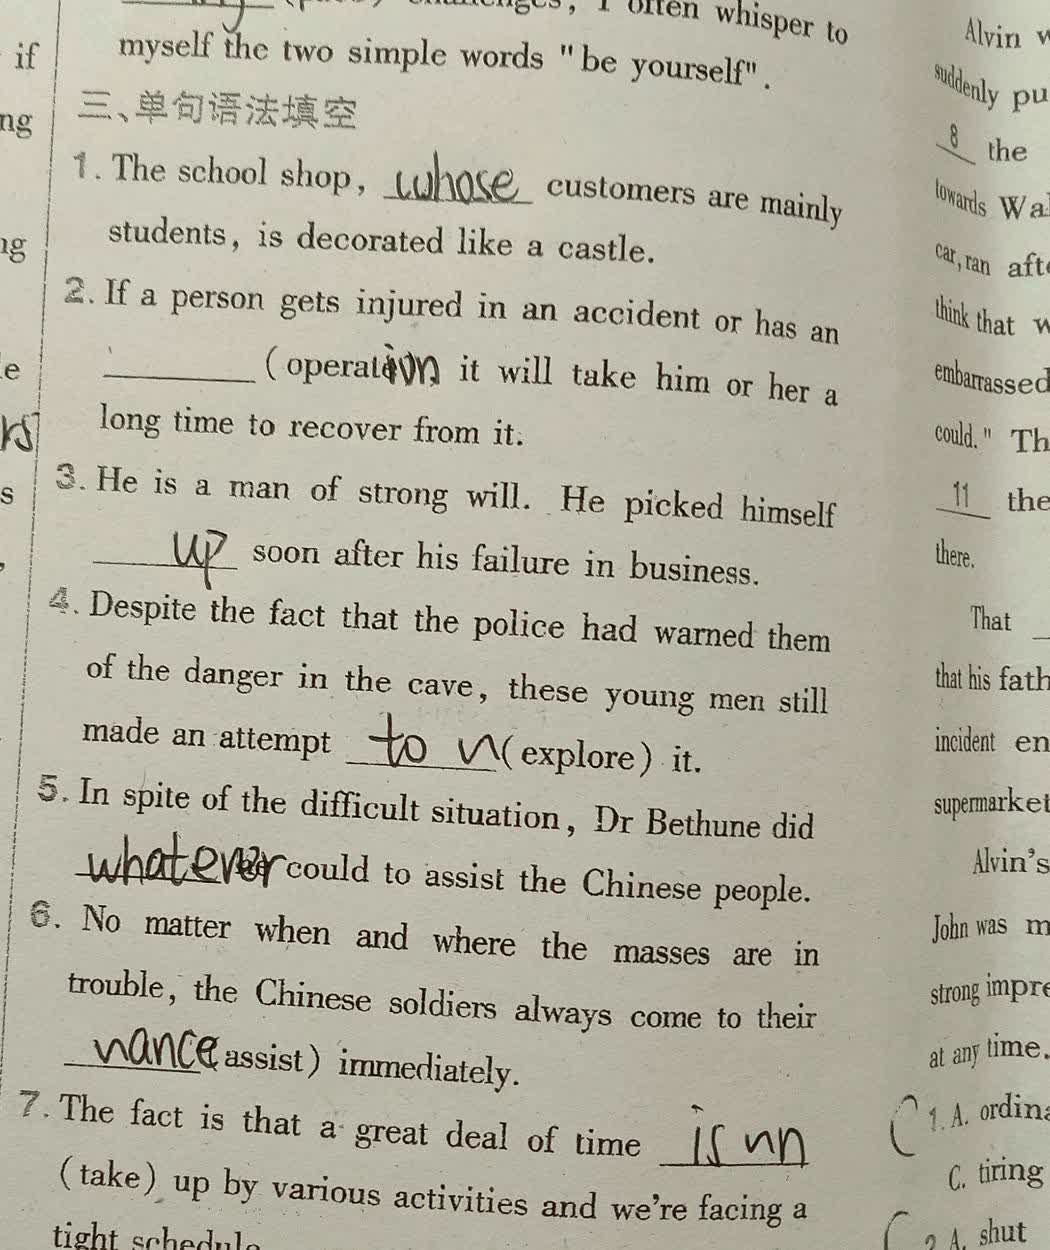 often whisper to
myself the two simple words "be yourself".
三、单句语法填空
1. The school shop, whose customers are mainly
students, is decorated like a castle.
2. If a person gets injured in an accident or has an
(operation it will take him or her a
long time to recover from it.
3. He is a man of strong will. He picked himself
up soon after his failure in business.
4. Despite the fact that the police had warned them
of the danger in the cave, these young men still
made an attempt to (explore) it.
5. In spite of the difficult situation, Dr Bethune did
whatever could to assist the Chinese people.
6. No matter when and where the masses are in
trouble, the Chinese soldiers always come to their
nance assist) immediately.
7. The fact is that a great deal of time is
(take) up by various activities and we're facing a
tight schedule
if
ng
s
Alvin
suddenly pu
8 the
towards Wa
car, ran aft
think that w
embarrassed
could." Th
11 the
there.
That
that his fath
incident en
supermarket
Alvin's
John was m
strong impre
at any time.
1. A. ordina
C. tiring
2 A. shut